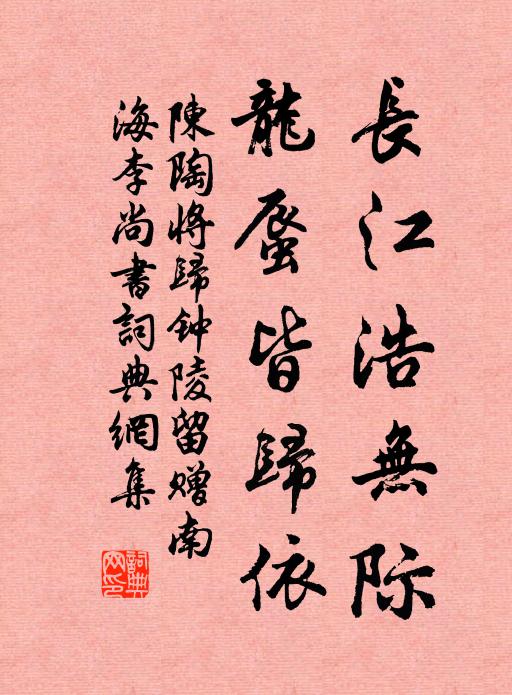 長江浩無际
龍蜃皆歸依
陳陶將歸钟陵留赠南
海李尚書詞典網集
詞典网印